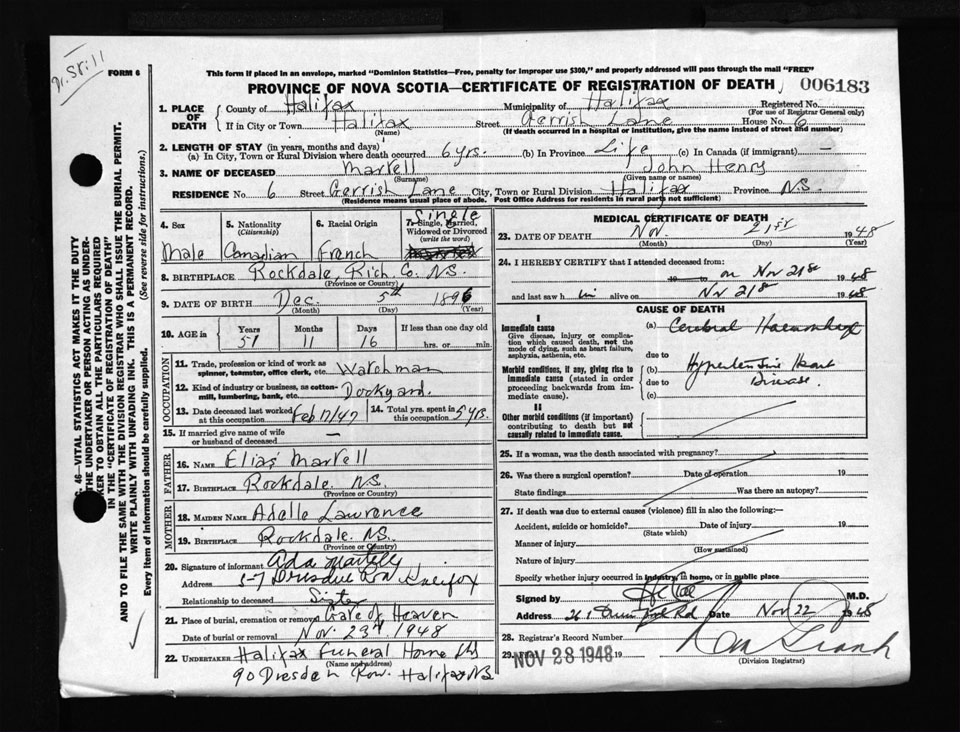 Dr. Still
FORM 6
This form if placed in an envelope, marked "Dominion Statistics—Free, penalty for improper use $300," and properly addressed will pass through the mail "FREE"
PROVINCE OF NOVA SCOTIA—CERTIFICATE OF REGISTRATION OF DEATH 006183
1. PLACE OF DEATH
County of Halifax Municipality of Halifax Registered No.
(For use of Registrar General only)
If in City or Town Halifax Street Gerrish Lane House No. 6
(Name) (If death occurred in a hospital or institution, give the name instead of street and number)
2. LENGTH OF STAY (in years, months and days)
(a) In City, Town or Rural Division where death occurred 6 yrs. (b) In Province Life (c) In Canada (if immigrant) —
3. NAME OF DECEASED Martell John Henry
(Surname) (Given name or names)
RESIDENCE No. 6 Street Gerrish Lane City, Town or Rural Division Halifax Province N.S.
(Residence means usual place of abode. Post Office Address for residents in rural parts not sufficient)
4. Sex
Male
5. Nationality
(Citizenship)
Canadian
6. Racial Origin
French
Single
7. Single, Married, Widowed or Divorced
(write the word)
8. BIRTHPLACE Rockdale, Rich. Co. N.S.
(Province or Country)
9. DATE OF BIRTH Dec. 5th 1896
(Month) (Day) (Year)
10. AGE in
Years Months Days If less than one day old
51 11 16 hrs. or min.
OCCUPATION
11. Trade, profession or kind of work as spinner, teamster, office clerk, etc. Watchman
12. Kind of industry or business, as cotton-mill, lumbering, bank, etc. Dockyard.
13. Date deceased last worked at this occupation Feb 17/47
14. Total yrs. spent in this occupation 5 yrs.
15. If married give name of wife or husband of deceased —
FATHER
16. NAME Elias Martell
17. BIRTHPLACE Rockdale. N.S.
(Province or Country)
MOTHER
18. MAIDEN NAME Adelle Lawrence
19. BIRTHPLACE Rockdale. N.S.
(Province or Country)
20. Signature of informant Ada Martell
Address 57 Dresden Row Halifax
Relationship to deceased Sister
21. Place of burial, cremation or removal Gate of Heaven
Date of burial or removal Nov. 23rd 1948
22. UNDERTAKER Halifax Funeral Home Ltd
(Name and address)
90 Dresden Row. Halifax NS
MEDICAL CERTIFICATE OF DEATH
23. DATE OF DEATH Nov. 21st 1948
(Month) (Day) (Year)
24. I HEREBY CERTIFY that I attended deceased from:
19 to on Nov 21st 1948
and last saw him alive on Nov 21st 1948
CAUSE OF DEATH
I
Immediate cause
Give disease, injury or complication which caused death, not the mode of dying, such as heart failure, asphyxia, asthenia, etc.
(a) Cerebral Haemorrhage
due to
Morbid conditions, if any, giving rise to immediate cause (stated in order proceeding backwards from immediate cause).
(b) Hypertensive Heart
due to Disease.
(c)
II
Other morbid conditions (if important) contributing to death but not causally related to immediate cause.
25. If a woman, was the death associated with pregnancy?
26. Was there a surgical operation? Date of operation 19
State findings Was there an autopsy?
27. If death was due to external causes (violence) fill in also the following:
Accident, suicide or homicide? Date of injury 19
(State which)
Manner of injury
(How sustained)
Nature of injury
Specify whether injury occurred in industry, in home, or in public place
Signed by M.D.
Address Rd Date Nov 22 1948
28. Registrar's Record Number
29. NOV 28 1948 19
(Division Registrar)
C. 46—VITAL STATISTICS ACT MAKES IT THE DUTY
THE UNDERTAKER OR PERSON ACTING AS UNDER-
KER TO OBTAIN ALL THE PARTICULARS REQUIRED
IN THE "CERTIFICATE OF REGISTRATION OF DEATH"
AND TO FILE THE SAME WITH THE DIVISION REGISTRAR WHO SHALL ISSUE THE BURIAL PERMIT.
WRITE PLAINLY WITH UNFADING INK. THIS IS A PERMANENT RECORD.
Every item of information should be carefully supplied. (See reverse side for instructions.)